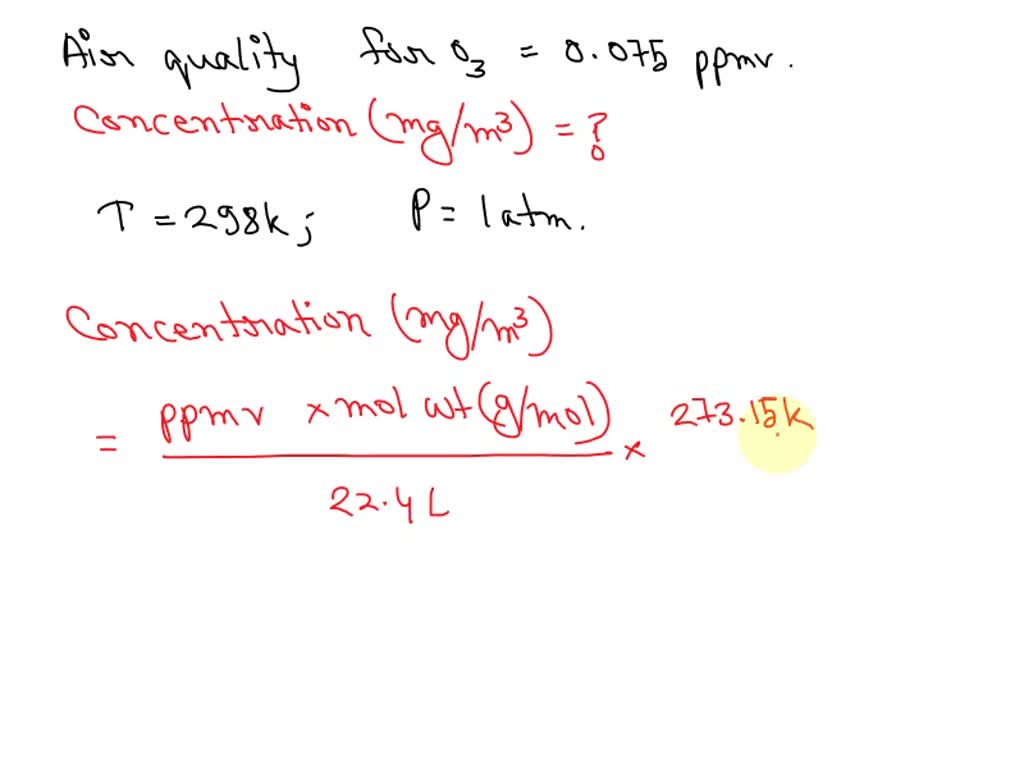 Air quality for O₃ = 0.075 ppmv.
Concentration (mg/m³) = ?
T = 298k; P = 1 atm.
Concentration (mg/m³)
= ppmv × mol wt (g/mol) × 273.15k
22.4 L